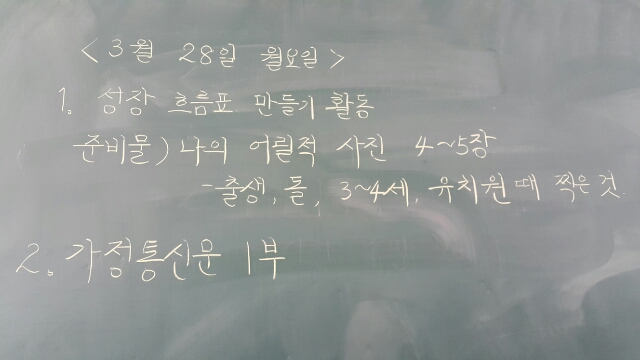 <3월 28일 월요일>
1. 성장 흐름표 만들기 활동
준비물) 나의 어릴적 사진 4~5장
-출생, 돌, 3~4세, 유치원 때 찍은 것
2. 가정통신문 1부